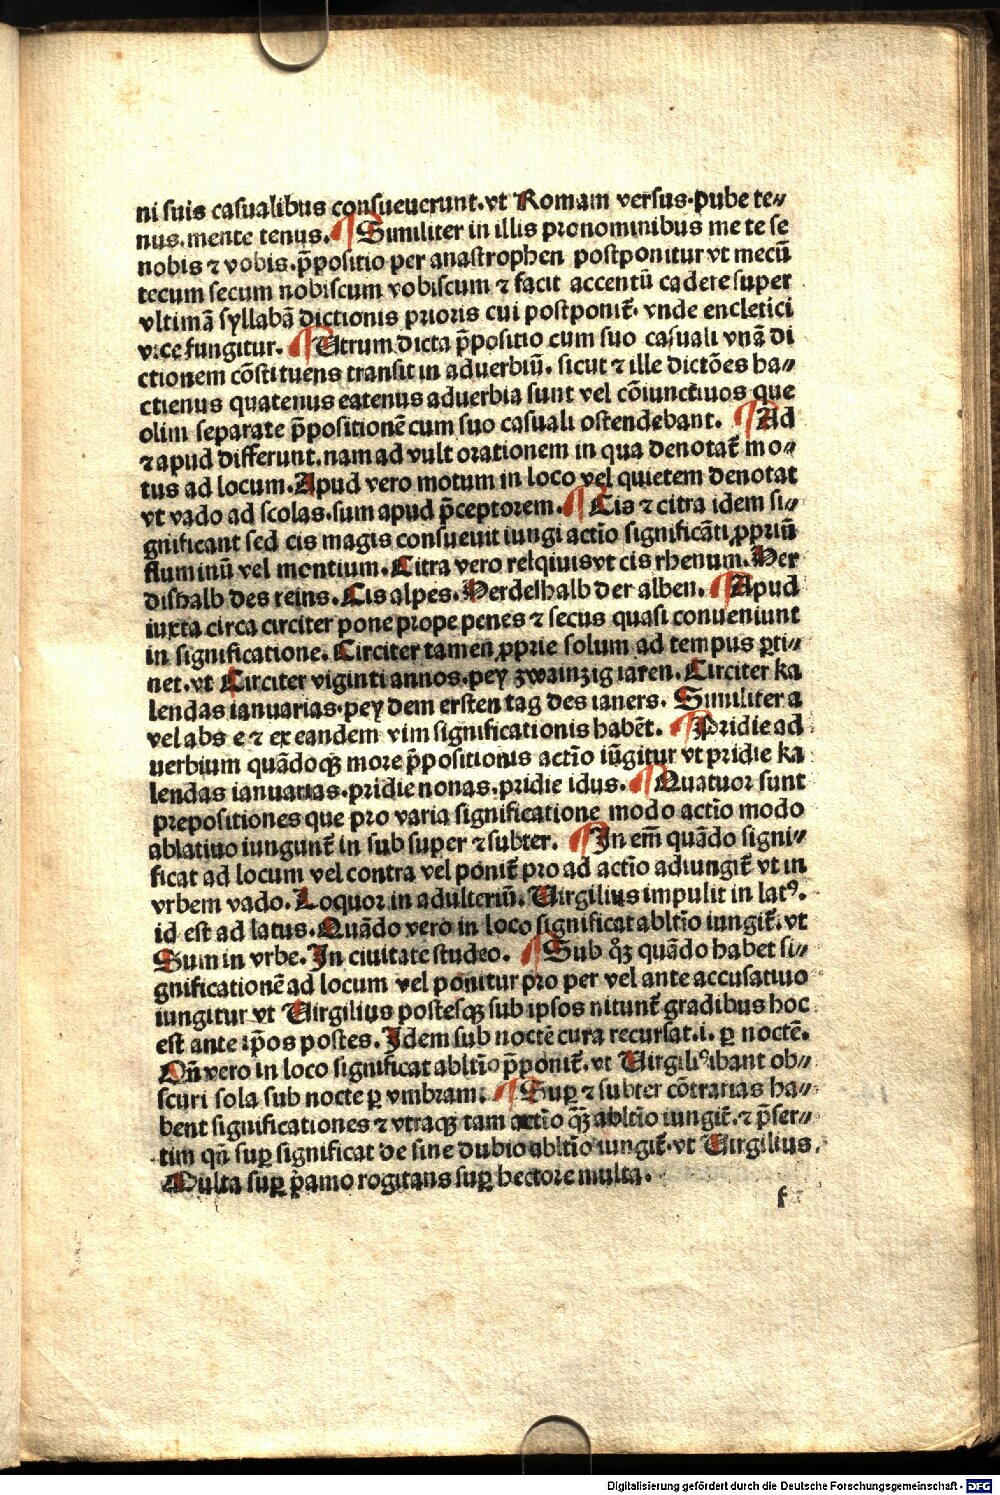 ni suis casualibus consueuerunt.vt Romam versus.pube te⸗
nus.mente tenus. ¶ Similiter in illis pronominibus me te se
nobis ⁊ vobis.p̄positio per anastrophen postponitur vt mecū
tecum secum nobiscum vobiscum ⁊ facit accentū cadere super
vltimā syllabā dictionis prioris cui postponit᷑. vnde encletici
vice fungitur. ¶ Utrum dicta p̄positio cum suo casuali vnā di
ctionem cōstituens transit in aduerbiū. sicut ⁊ ille dictōes ha⸗
ctienus quatenus eatenus aduerbia sunt vel cōiunctiuos que
olim separate p̄positionē cum suo casuali ostendebant. ¶ Ad
⁊ apud differunt.nam ad vult orationem in qua denotat᷑ mo⸗
tus ad locum.Apud vero motum in loco vel quietem denotat
vt vado ad scolas.sum apud p̄ceptorem. ¶ Cis ⁊ citra idem si⸗
gnificant sed cis magis consueuit iungi actīo significāti ꝓpriū
fluminū vel montium.Citra vero relqiuis vt cis rhenum.Her
dishalb des reins.Cis alpes.Herdelhalb der alben. ¶ Apud
iuxta circa circiter pone prope penes ⁊ secus quasi conueniunt
in significatione.Circiter tamen ꝓprie solum ad tempus ꝑti⸗
net.vt Circiter viginti annos.pey zwainzig iaren.Circiter ka
lendas ianuarias.pey dem ersten tag des ianers. Similiter a
vel abs e ⁊ ex eandem vim significationis habēt. ¶ Pridie ad
uerbium quādoqꝫ more p̄positionis actīo iūgitur vt pridie ka
lendas ianuarias.pridie nonas.pridie idus. ¶ Quatuor sunt
prepositiones que pro varia significatione modo actīo modo
ablatiuo iungunt᷑ in sub super ⁊ subter. ¶ In em̄ quādo signi⸗
ficat ad locum vel contra vel ponit᷑ pro ad actīo adiungit᷑ vt in
vrbem vado.Loquor in adulteriū.Uirgilius impulit in latꝰ.
id est ad latus.Quādo vero in loco significat abltīo iungit᷑.vt
Sum in vrbe.In ciuitate studeo. ¶ Sub qꝫ̄ quādo habet si⸗
gnificationē ad locum vel ponitur pro per vel ante accusatiuo
iungitur vt Uirgilius postesqꝫ sub ipsos nitunt᷑ gradibus hoc
est ante ip̄os postes.Idem sub noctē cura recursat.i. ꝑ noctē.
Qn̄ vero in loco significat abltīo p̄ponit᷑.vt Uirgiliꝰ ibant ob⸗
scuri sola sub nocte ꝑ vmbram. ¶ Suꝑ ⁊ subter cōtrarias ha⸗
bent significationes ⁊ vtraqꝫ tam actīo qꝫ̄ abltīo iungit᷑.⁊ p̄ser⸗
tim qn̄ suꝑ significat de sine dubio abltīo iungit᷑.vt Uirgilius.
Multa suꝑ p̄amo rogitans suꝑ hectore multa.
f
Digitalisierung gefördert durch die Deutsche Forschungsgemeinschaft - DFG